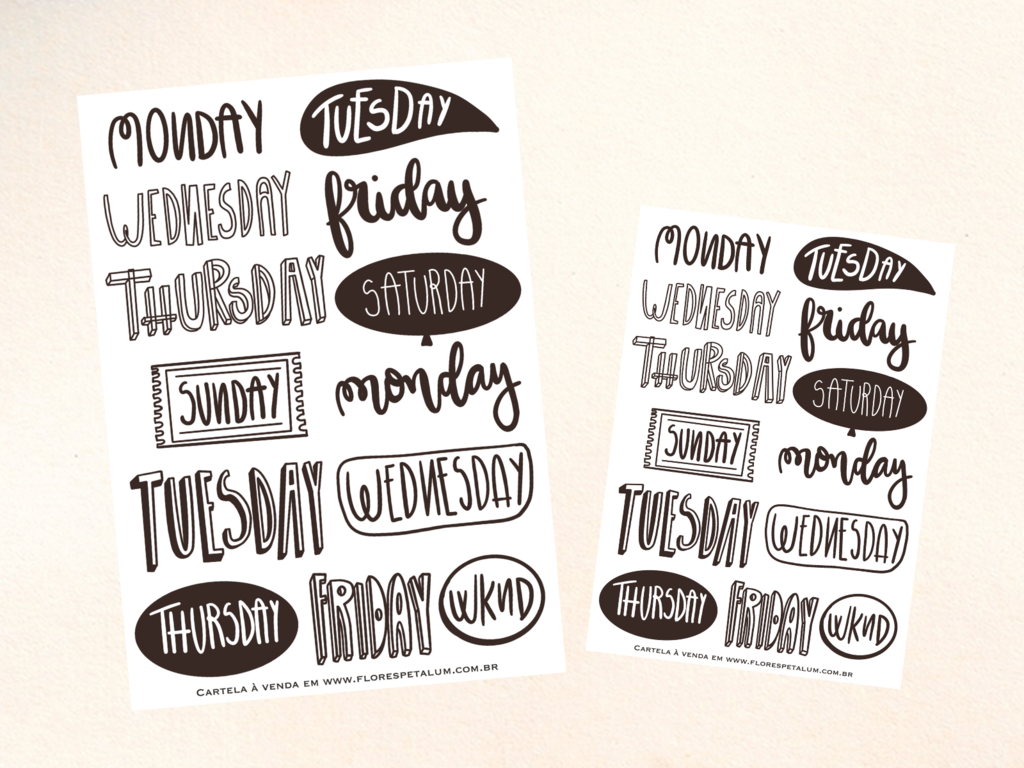 MONDAY
TUESDAY
WEDNESDAY
friday
THURSDAY
SATURDAY
SUNDAY
monday
TUESDAY
WEDNESDAY
THURSDAY
FRIDAY
WKND
CARTELA À VENDA EM WWW.FLORESPETALUM.COM.BR
MONDAY
TUESDAY
WEDNESDAY
friday
THURSDAY
SATURDAY
SUNDAY
monday
TUESDAY
WEDNESDAY
THURSDAY
FRIDAY
WKND
CARTELA À VENDA EM WWW.FLORESPETALUM.COM.BR